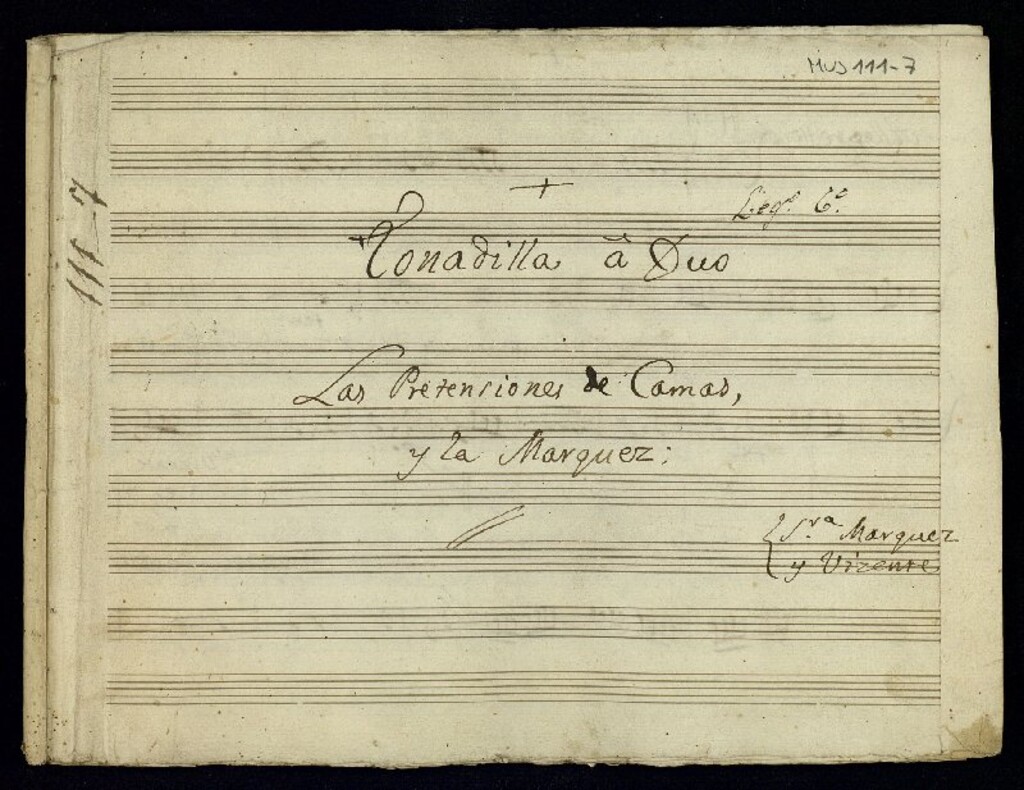 MUS 111-7
111-7
Legº 6º
Tonadilla â Duo
Las Pretensiones de Camas,
y la Marquez;
Sra Marquez
y Vizente